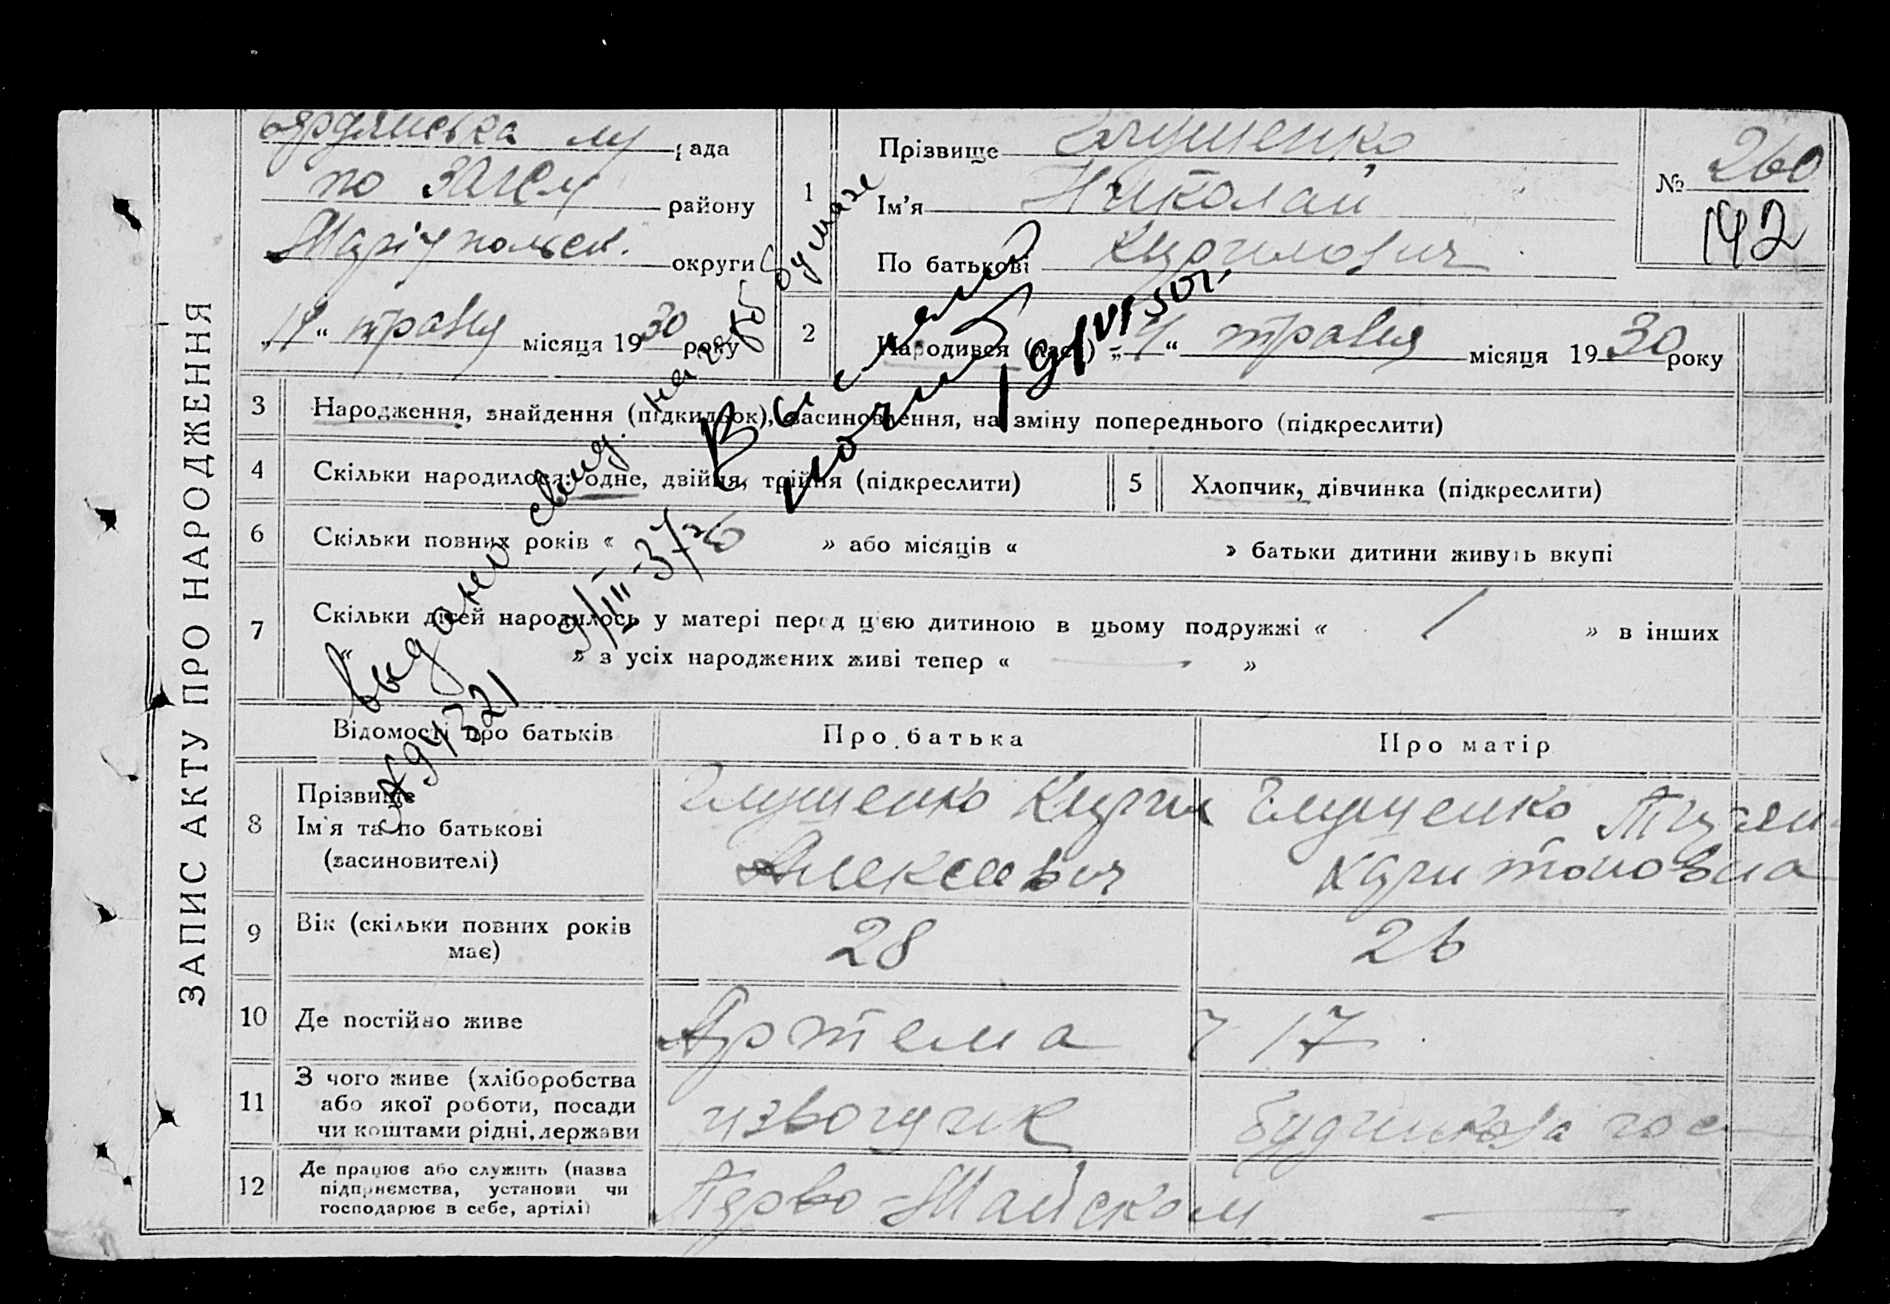 ЗАПИС АКТУ ПРО НАРОДЖЕННЯ
Бердянська рада
по ЗАГСу району
Маріупольск. округи
„14“ травня місяця 1930 року
1
Прізвище Глущенко
Ім’я Николай
По батькові Кирилович
№ 260
142
2
Народився (лась) „4“ травня місяця 1930 року
3 Народження, знайдення (підкидьок), засиновлення, на зміну попереднього (підкреслити)
4 Скільки народилося: одне, двійня, трійня (підкреслити)
5 Хлопчик, дівчинка (підкреслити)
6 Скільки повних років « » або місяців « » батьки дитини живуть вкупі
7 Скільки дітей народилось у матері перед цією дитиною в цьому подружжі « / » в інших
« » з усіх народжених живі тепер « — »
выдано свид. на бумазе
9/III-37
Выслано
1 9/VI 50г.
Відомості про батьків
Про батька
Про матір
8 Прізвище
Ім’я та по батькові
(засиновителі)
Глущенко Кирил
Алексеевич
Глущенко
Харитоновна
9 Вік (скільки повних років
має)
28
26
10 Де постійно живе
Артема 17
11 З чого живе (хліборобства
або якої роботи, посади
чи коштами рідні, держави
извощик
12 Де працює або служить (назва
підприємства, установи чи
господарює в себе, артілі)
Перво-Майском
—